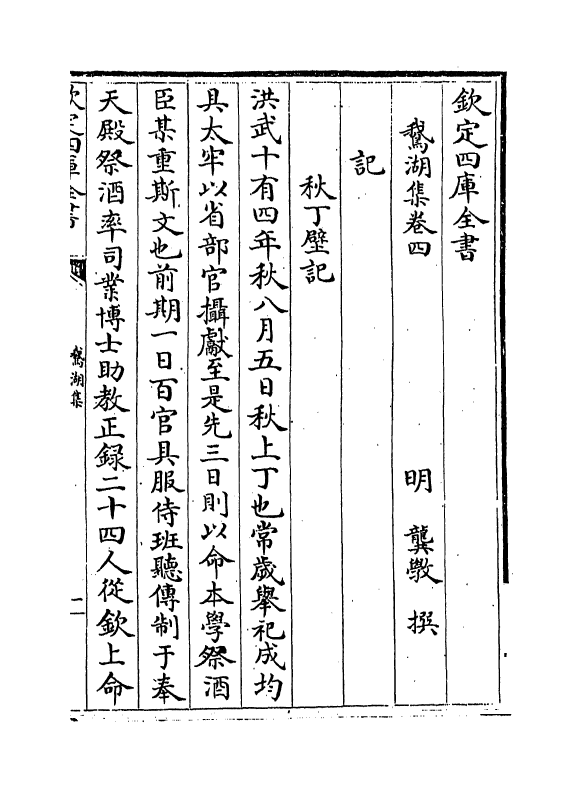 欽定四庫全書
鵝湖集卷四
明 龔斆 撰
記
秋丁壁記
洪武十有四年秋八月五日秋上丁也常歲舉祀成均
具太牢以省部官攝獻至是先三日則以命本學祭酒
臣某重斯文也前期一日百官具服侍班聽傳制于奉
天殿祭酒率司業博士助教正錄二十四人從欽上命
欽定四庫全書
鵝湖集